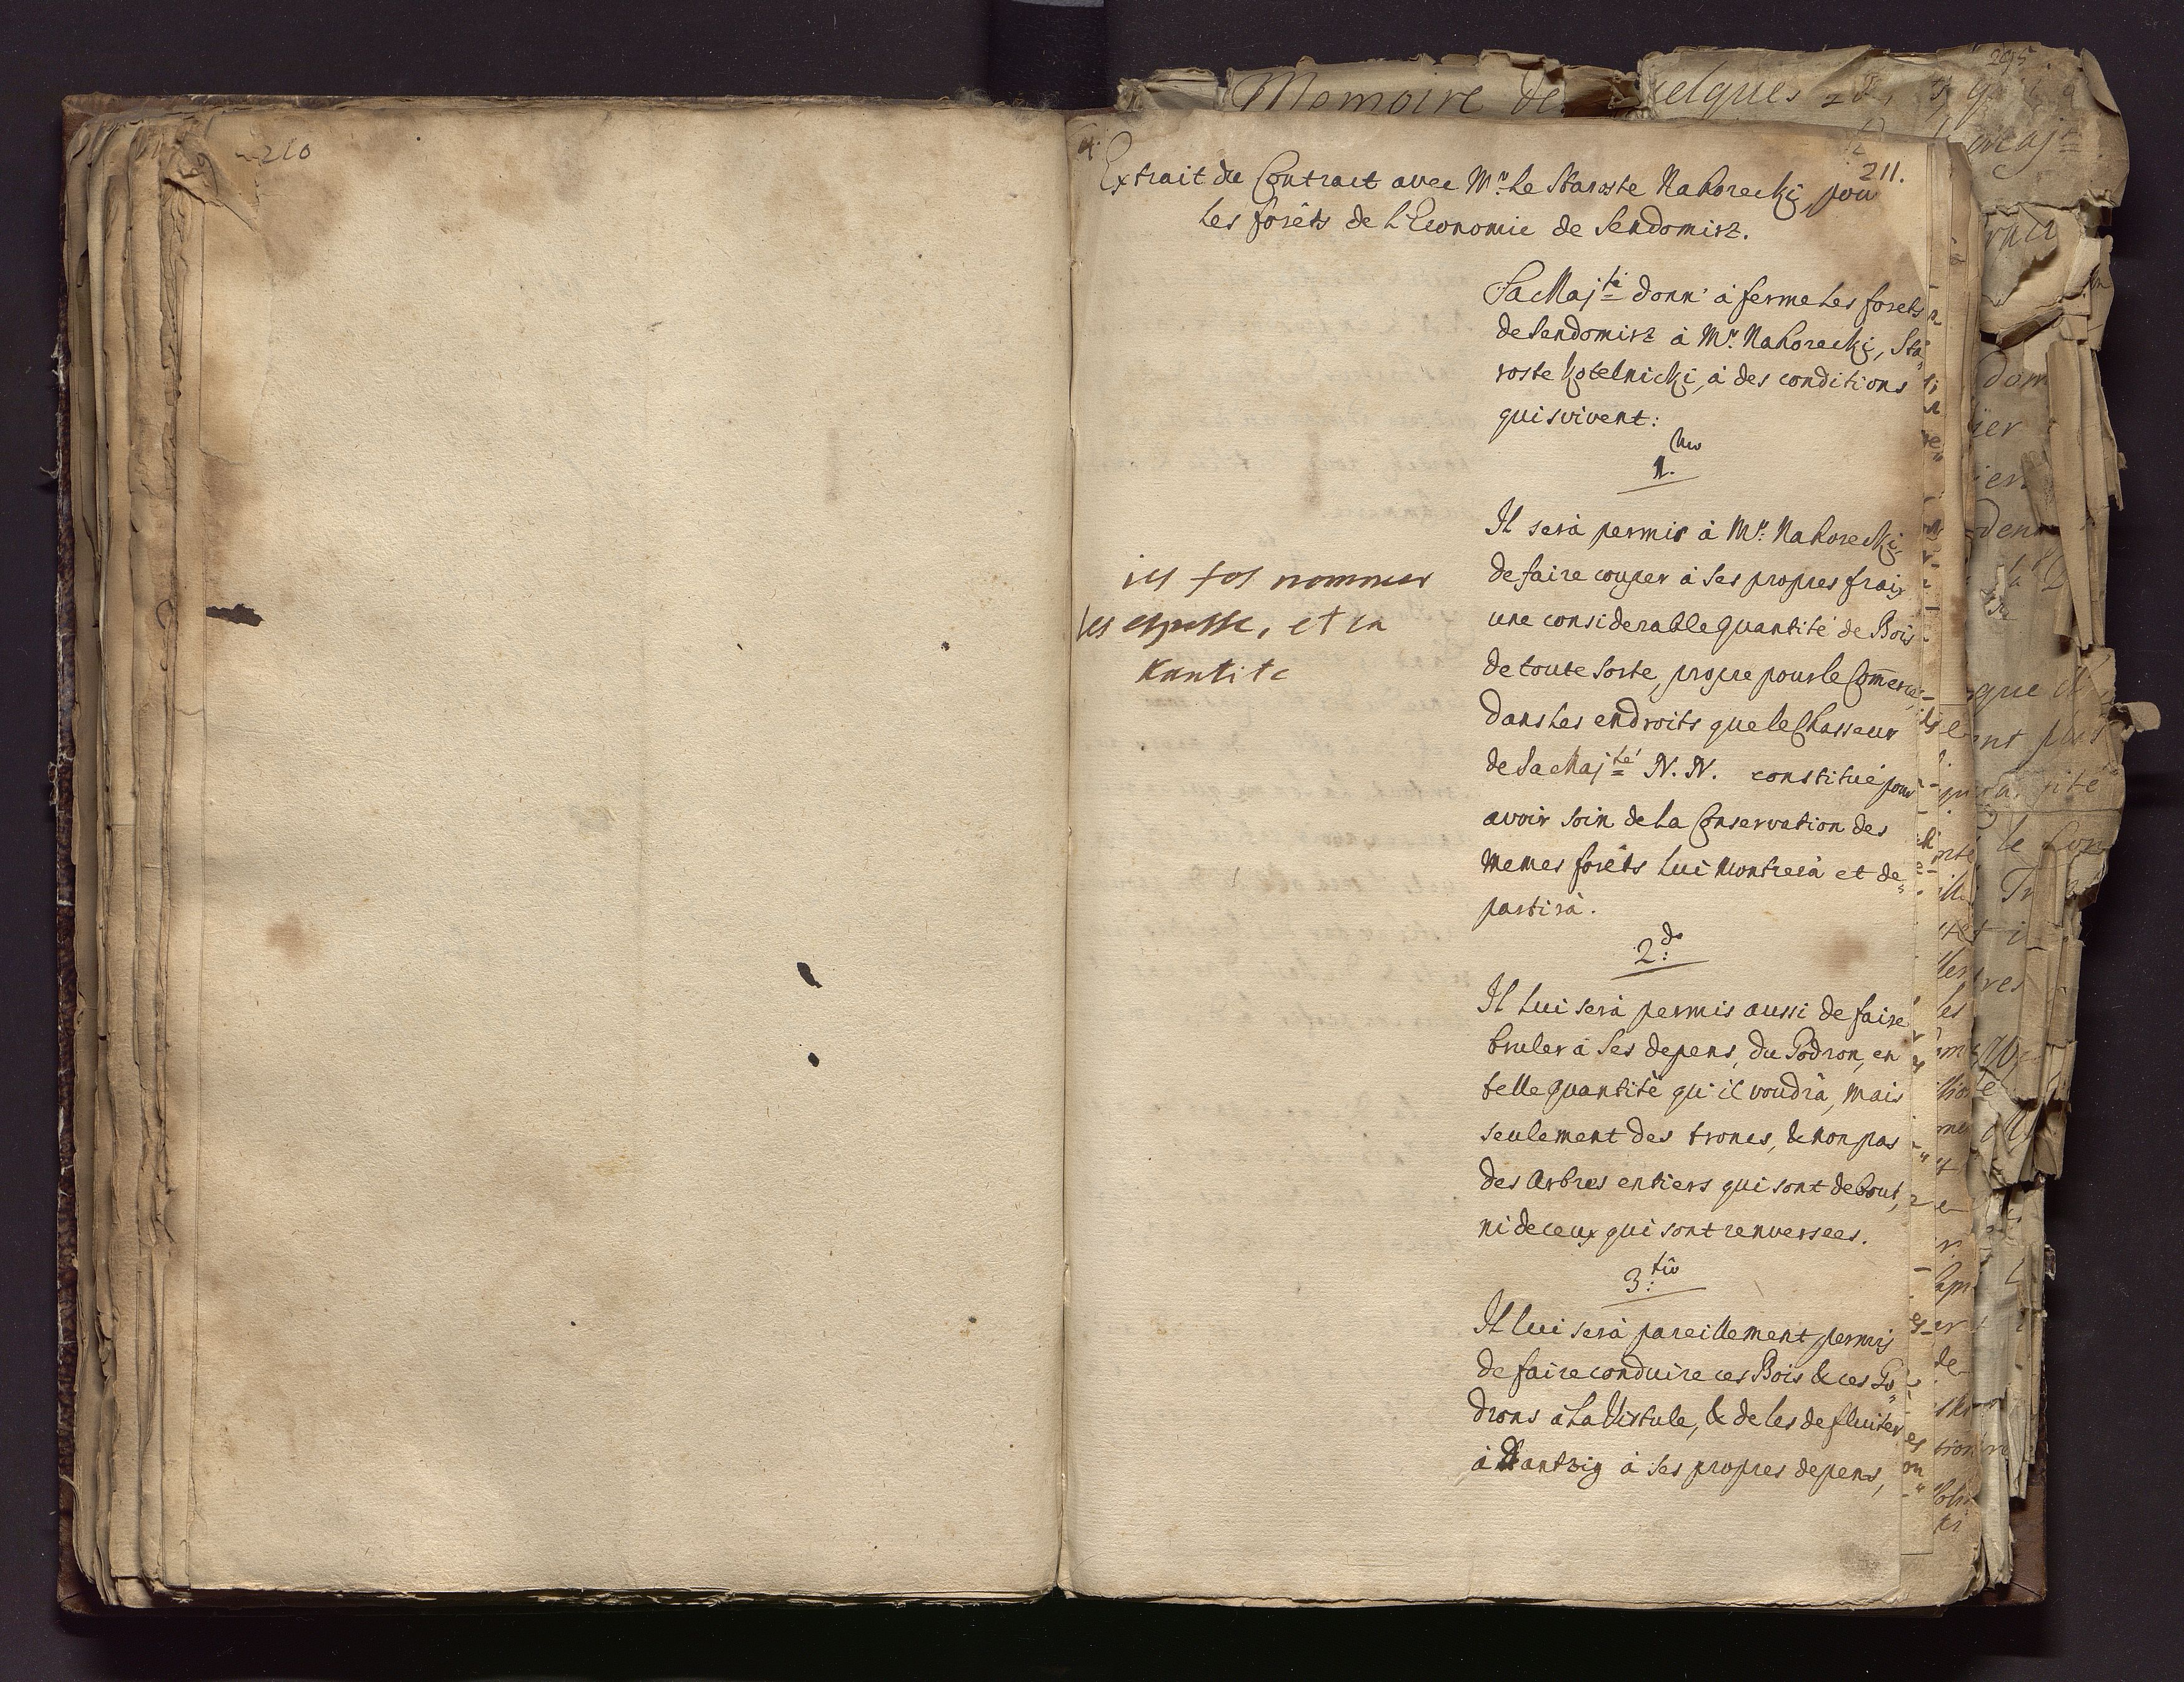 210
211.
Extrait du Contract avec Mr. le Staroste Nahorecki, pou
les forêts de l'Economie de Sendomirz.
Sa Majté donn' à ferme les forets
de Sendomirz à Mr. Nahorecki, Sta„
roste Kotelnicki, à des conditions
qui suivent:
1.mo
Il serà permis à Mr. Nahorecki,
de faire couper à ses propres fraix
une considerable quantité de Bois
de toute sorte, propre pour le Com̄erce,
dans les endroits que le Chasseur
de Sa Majté N. N. constitué pour
avoir soin de la Conservation des
memes forêts lui montrerà et de„
partirà.
ill fos nommer
les espesse, et la
kantite
2.do
Il lui serà permis aussi de faire
bruler à ses depens, du Godron, en
telle quantité qu'il voudrà, mais
seulement des troncs, & non pas
des Arbres entiers qui sont debout,
ni de ceux qui sont renversees.
3.tio
Il lui serà pareillement permis
de faire conduire ces Bois & ces Go„
drons à la Vistule, & de les defluiter
à Dantzig à ses propres depens,
Memoire de quelques